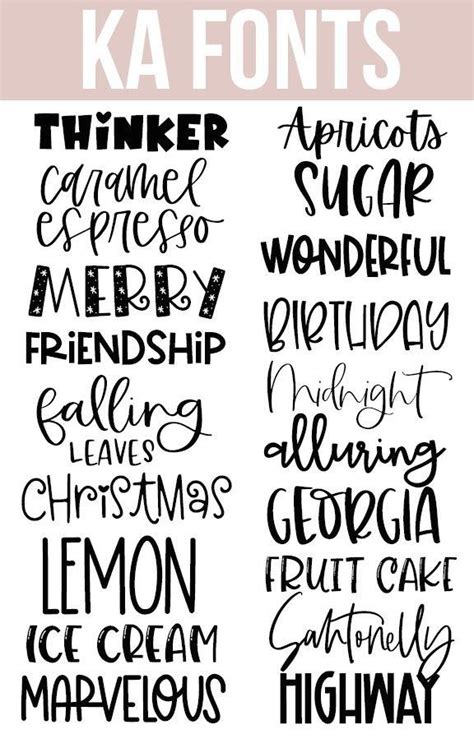 KA FONTS
THiNKER
caramel
espresso
MERRY
FRiENDSHIP
falling
LEAVES
CHRiSTMAS
LEMON
ICE CREAM
MARVELOUS
Apricots
SUGAR
WONDERFUL
BIRTHDAY
Midnight
alluring
GEORGIA
FRUIT CAKE
Sahtonelly
HIGHWAY